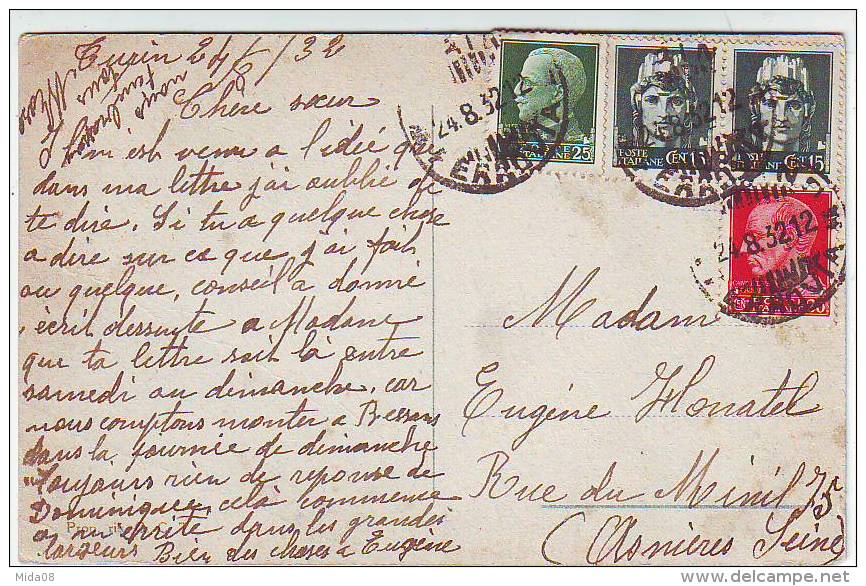 Turin 24/8/32
Chère sœur
Il m'est venu a l'idée que
dans ma lettre j'ai oublié de
te dire. Si tu a quelque chose
a dire sur ce que j'ai fait
ou quelque, conseil a donné
écrit dessuite a Madane
que ta lettre soit là entre
samedi ou dimanche, car
nous comptons monter a Bessans
dans la journée de dimanche
Toujours rien de reponse de
Dominique, celà commence
a m'enerité dans les grandes
largeurs Bien des choses a Eugène
nous
tous
Madame
Eugène Monatel
Rue du Minil 75
(Asnières Seine)
24.8.32.12
POSTE ITALIANE 25
POSTE ITALIANE CENT 15
POSTE ITALIANE CENT 15
24.8.32.12
24.8.32.12
CENT 20
Mida08
http://www.delcampe.net